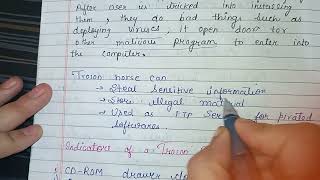 After user is tricked into installing
them, they do bad things such as
deploying viruses, it open door for
other malicious program to enter into
the computer.
Trojan horse can
→ Steal Sensitive information
→ Store illegal material
→ Used as FTP Ser for pirated
Softwares.
Indicators of a Trojan
CD-ROM drawer